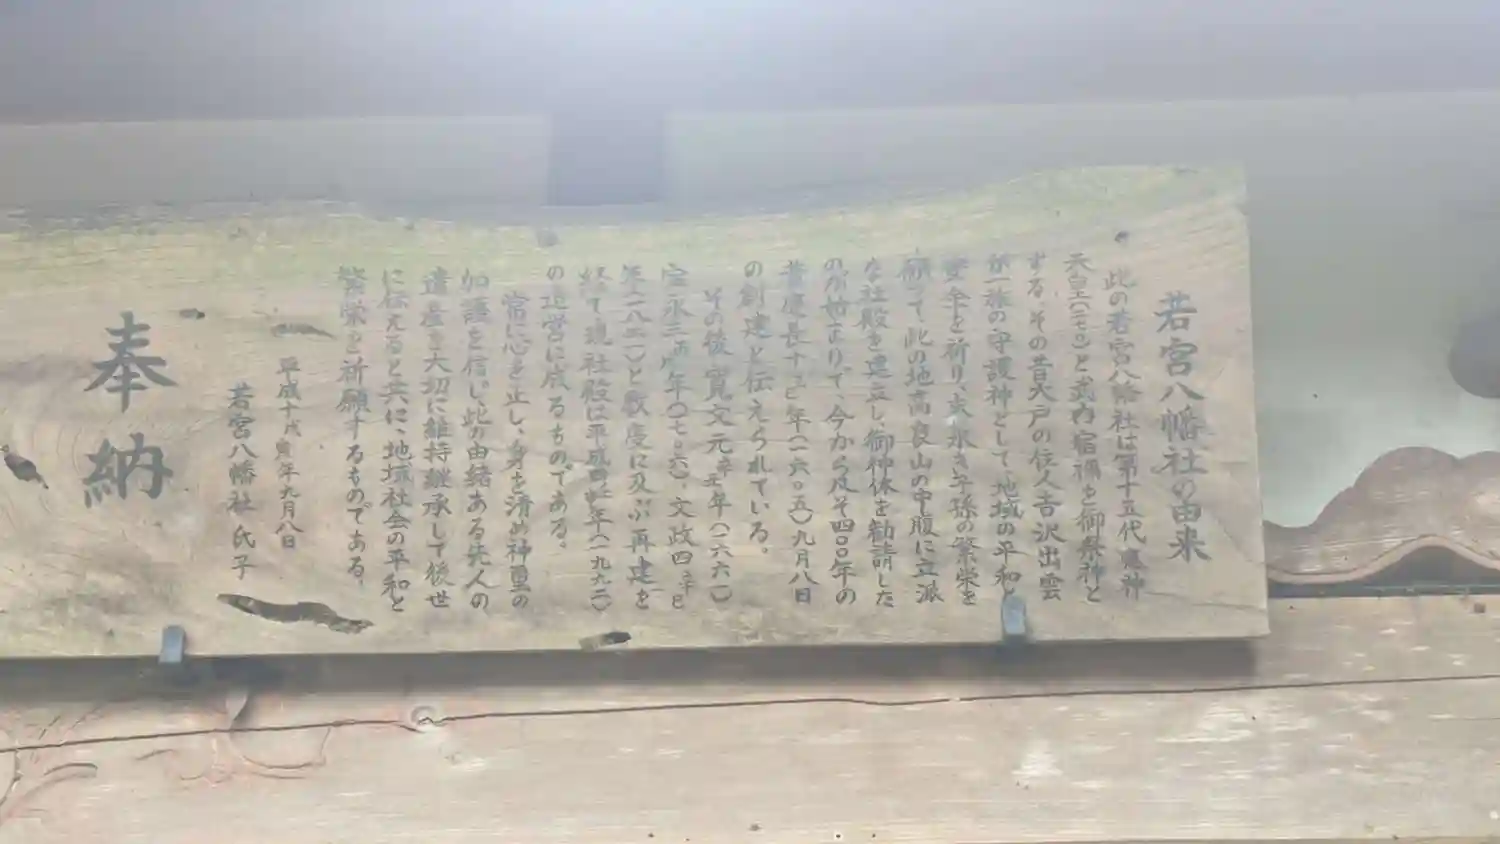 若宮八幡社の由来
此の若宮八幡社は第十五代應神
天皇(二七〇)と武内宿禰を御祭神と
する。その昔大戸の住人吉沢出雲
が一族の守護神として、地域の平和と
安全を祈り、末永き子孫の繁栄を
願って、此の地高良山の中腹に立派
な社殿を建立し、御神体を勧請した
のが始まりで、今から凡そ四〇〇年の
昔慶長十年(一六〇五)九月八日
の創建と伝えられている。
その後寛文元辛丑年(一六六一)
宝永三丙戌年(一七〇六)文政四辛巳
年(一八二一)と数度に及ぶ再建を
経て現社殿は平成四年(一九九二)
の造営に成るものである。
常に心を正し、身を清め神霊の
加護を信じ、此の由緒ある先人の
遺産を大切に維持継承して後世
に伝えると共に、地域社会の平和と
繁栄を祈願するものである。
平成十戊寅年九月八日
若宮八幡社 氏子
奉納